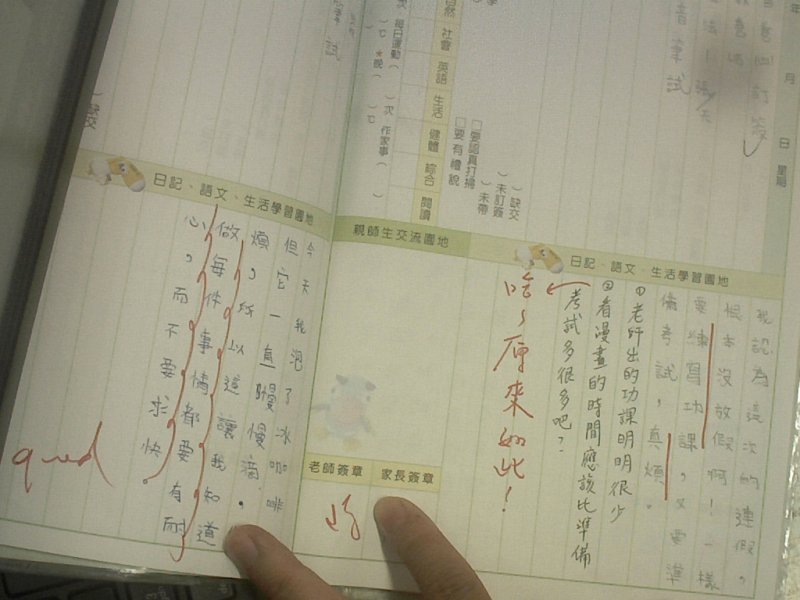 年 月 日 星期
音筆試
( )缺交
( )未訂簽
( )未帶
□要認真打掃
□要有禮貌
自然 社會 英語 生活 健體 綜合 閱讀
)次 作家事( )
次 每日運動(
日記、語文、生活學習園地
我認為這次的連假,
根本沒放假啊!一樣
要練寫功課,又要準
備考試,真煩。
①老師出的功課明明很少
②看漫畫的時間應該比準備
考試多很多吧?
哈~原來如此!
親師生交流園地
老師簽章 家長簽章
日記、語文、生活學習園地
今天我泡了冰咖啡
但它一直慢慢滴,
煩,所以這讓我知道
做每件事情都要有耐
心,而不要求快。
good